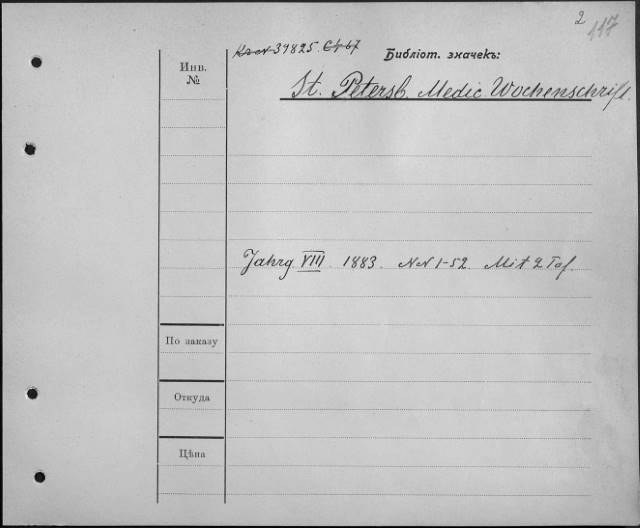 2
117
34825. 67
Библіот. значекъ:
Инв.
№
St. Petersb. Medic. Wochenschrift.
Jahrg VIII 1883. NN 1-52. Mit 2 Taf.
По заказу
Откуда
Цѣна